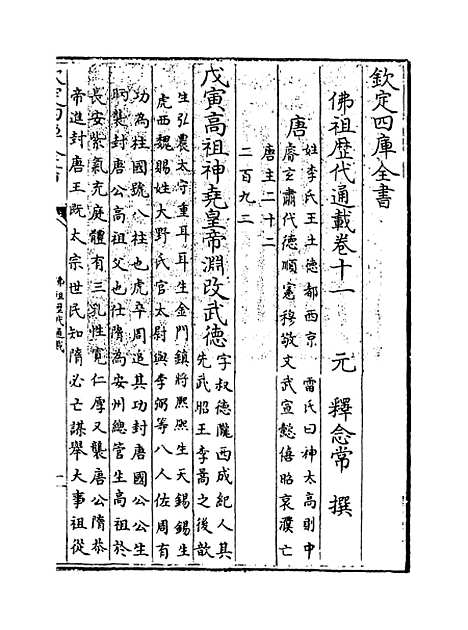 欽定四庫全書
佛祖歴代通載卷十一 元 釋念常 撰
唐
姓李氏王土德都西京 雷氏曰神太高則中
睿玄肅代德順憲穆敬文武宣懿僖昭哀濮亡
唐主二十二
二百九二
戊寅高祖神堯皇帝淵改武德
字叔德隴西成紀人其
先武昭王李暠之後歆
生弘農太守重耳耳生金門鎮將熈熈生天錫錫生
虎西魏賜姓大野氏官太尉與李弼等八人佐周有
功為柱國號八柱也虎卒周追其功封唐國公公生
昞襲封唐公高祖父也仕隋為安州總管生高祖於
長安紫氣充庭體有三乳性寛仁厚又襲唐公隋恭
帝進封唐王既太宗世民知隋必亡謀舉大事祖從
佛祖歴代通載
一